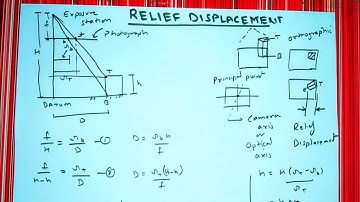 RELIEF DISPLACEMENT
Exposure
station
f
Photograph
H
T
h
DATUM
B
D
orthographic
T
B
Principal point
T
→ Camera
axis
or
Optical
axis
Relief
Displacement
f/H = r_b/D — ①
D = r_b H/f
f/H-h = r_T/D — ②
D = r_T(H-h)/f
h = H(r_T - r_b)/r_T